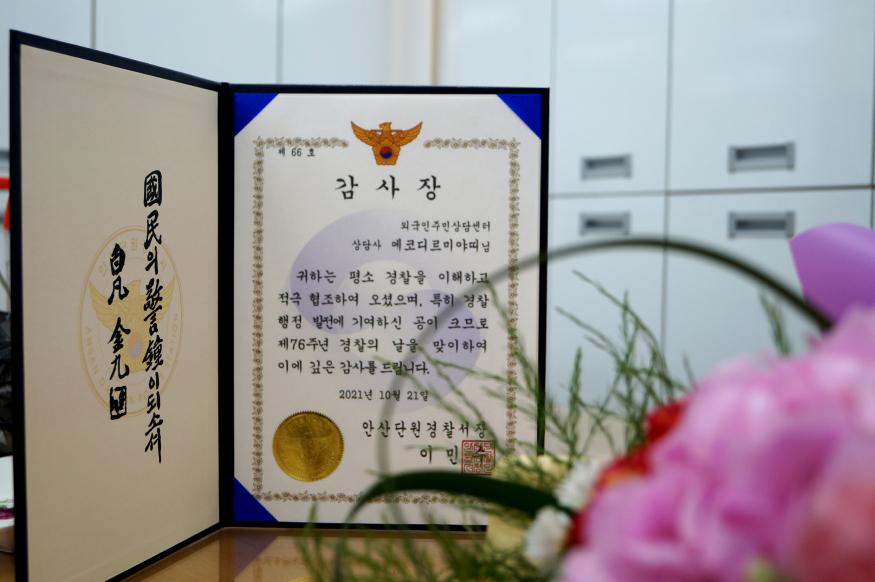 國民의 警鐘이 되소서
白凡 金九
제 66 호
감 사 장
외국인주민상담센터
상담사 에코디르미야띠님
귀하는 평소 경찰을 이해하고
적극 협조하여 오셨으며, 특히 경찰
행정 발전에 기여하신 공이 크므로
제76주년 경찰의 날을 맞이하여
이에 깊은 감사를 드립니다.
2021년 10월 21일
안산단원경찰서장
이 민